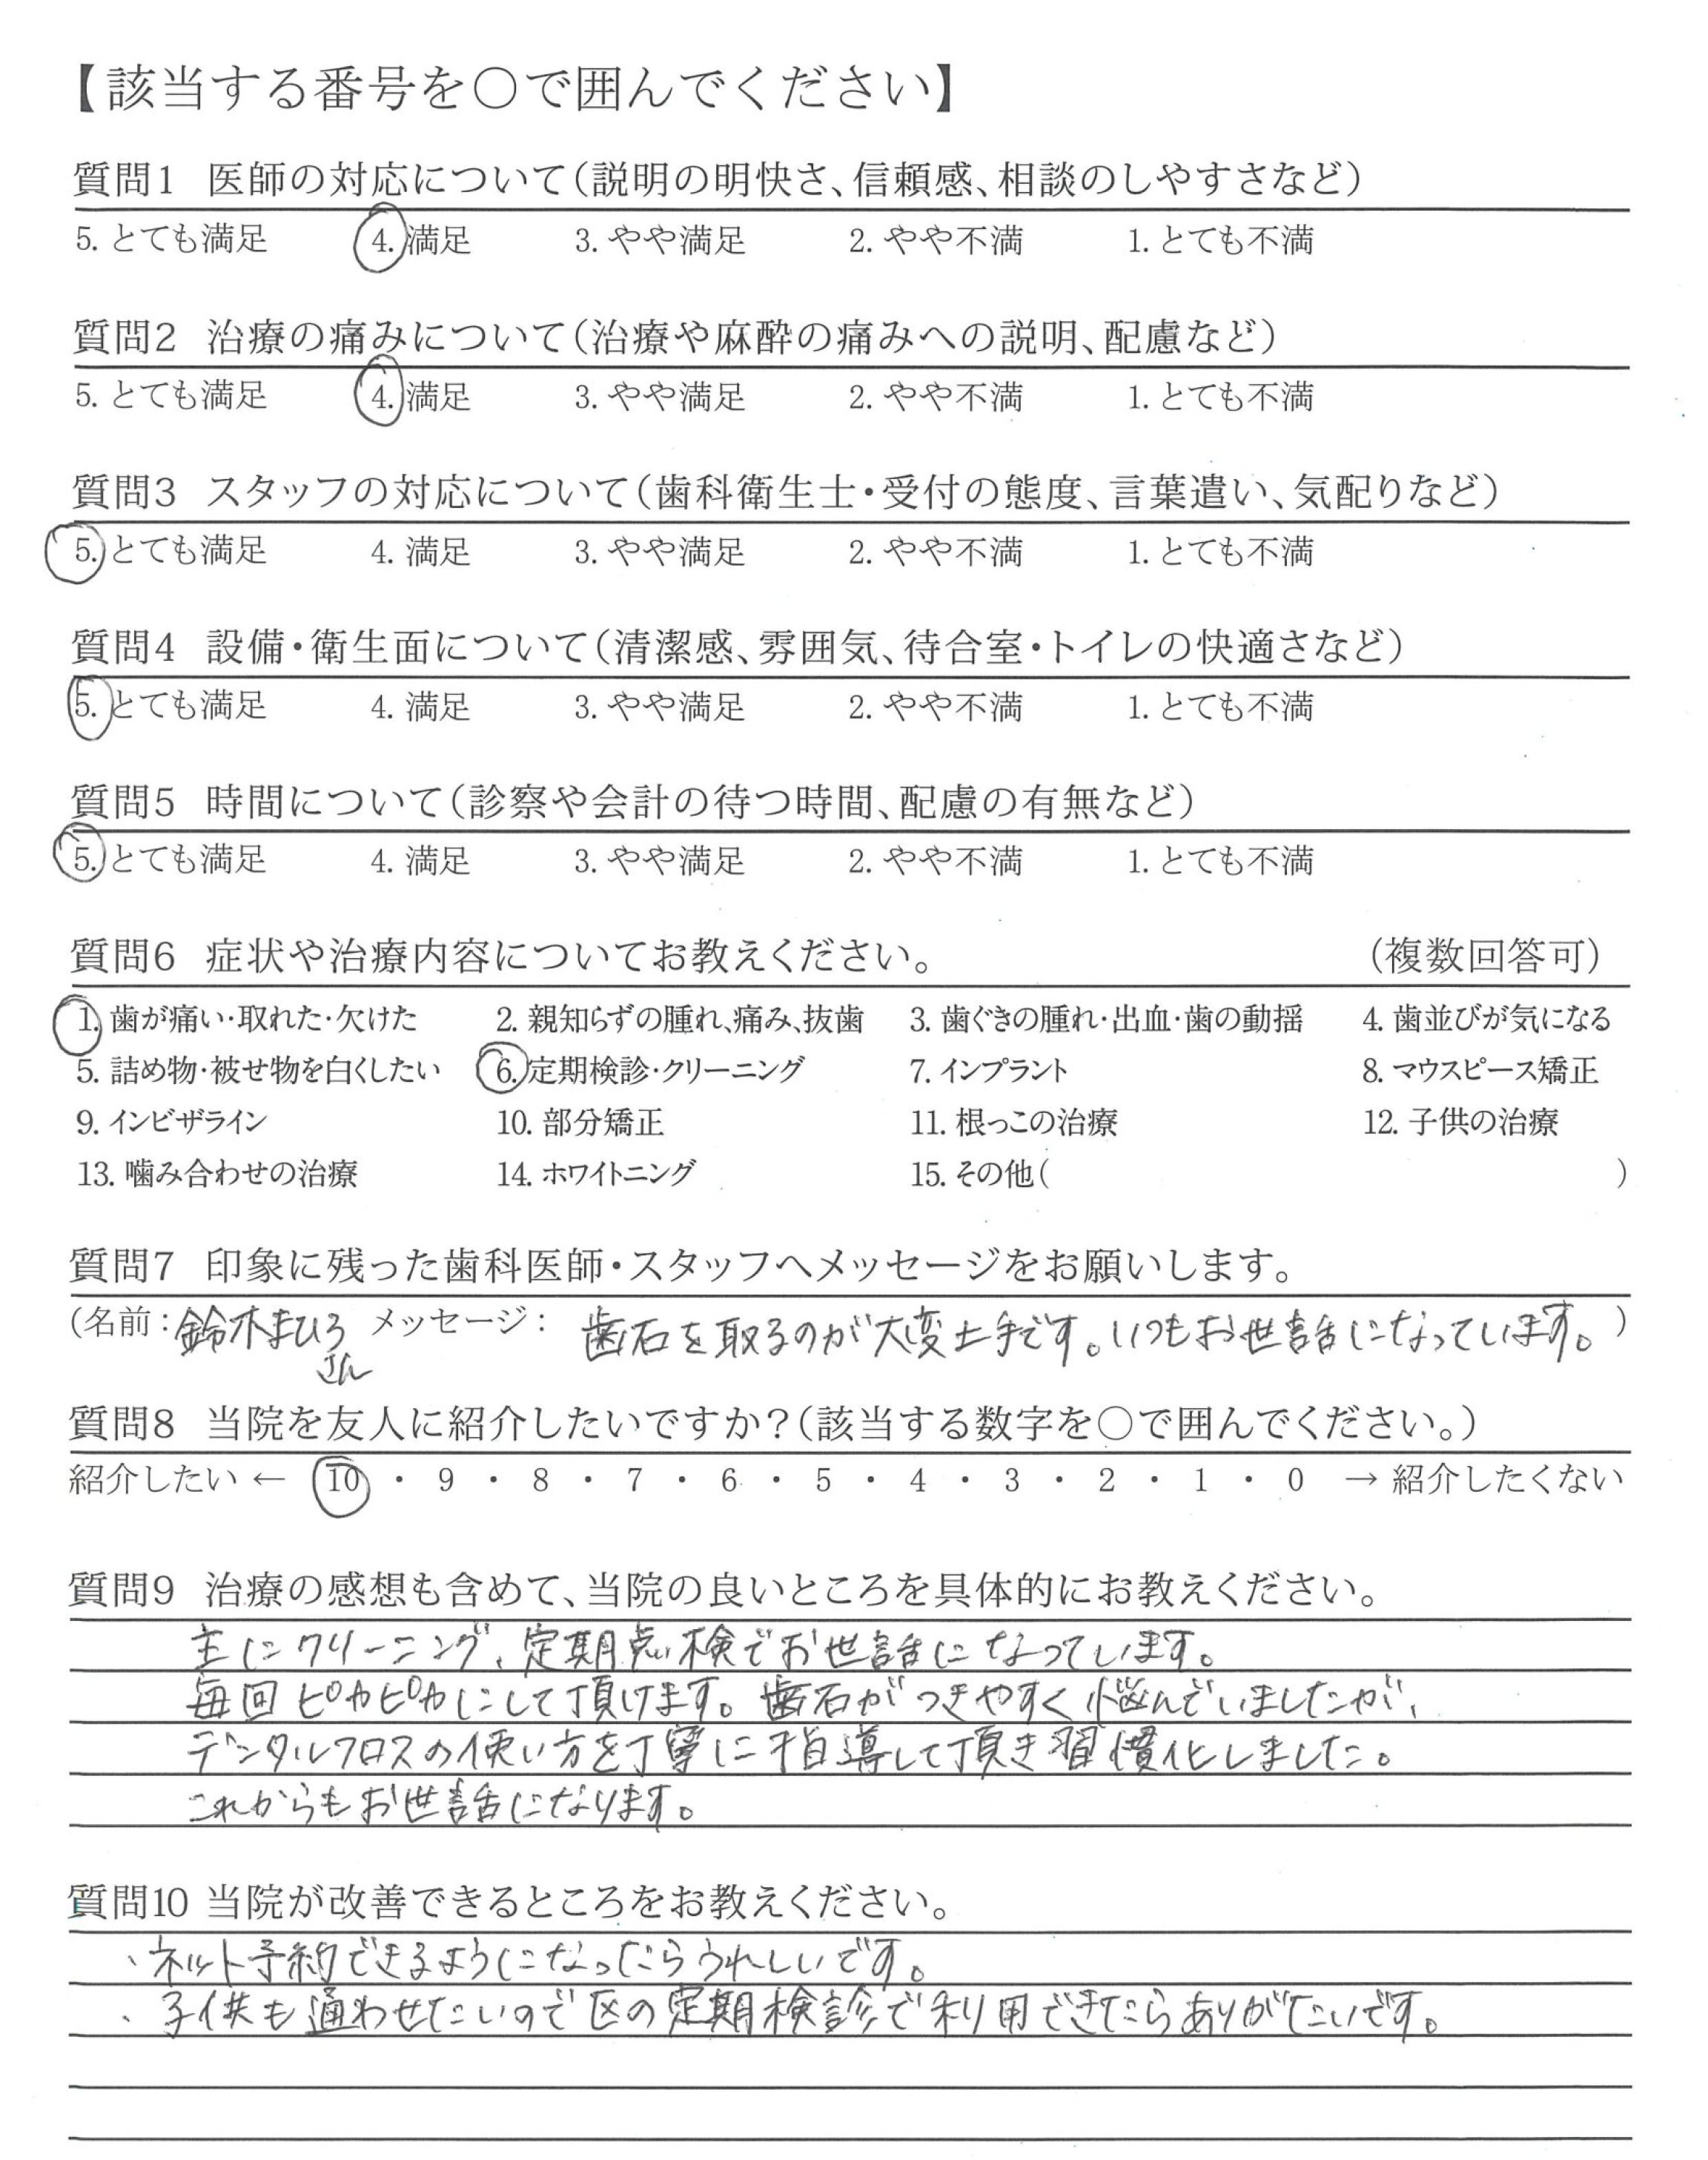 【該当する番号を○で囲んでください】
質問1 医師の対応について（説明の明快さ、信頼感、相談のしやすさなど）
5. とても満足 4. 満足 3. やや満足 2. やや不満 1. とても不満
質問2 治療の痛みについて（治療や麻酔の痛みへの説明、配慮など）
5. とても満足 4. 満足 3. やや満足 2. やや不満 1. とても不満
質問3 スタッフの対応について（歯科衛生士・受付の態度、言葉遣い、気配りなど）
5. とても満足 4. 満足 3. やや満足 2. やや不満 1. とても不満
質問4 設備・衛生面について（清潔感、雰囲気、待合室・トイレの快適さなど）
5. とても満足 4. 満足 3. やや満足 2. やや不満 1. とても不満
質問5 時間について（診察や会計の待つ時間、配慮の有無など）
5. とても満足 4. 満足 3. やや満足 2. やや不満 1. とても不満
質問6 症状や治療内容についてお教えください。 （複数回答可）
1. 歯が痛い・取れた・欠けた 2. 親知らずの腫れ、痛み、抜歯 3. 歯ぐきの腫れ・出血・歯の動揺 4. 歯並びが気になる
5. 詰め物・被せ物を白くしたい 6. 定期検診・クリーニング 7. インプラント 8. マウスピース矯正
9. インビザライン 10. 部分矯正 11. 根っこの治療 12. 子供の治療
13. 噛み合わせの治療 14. ホワイトニング 15. その他（ ）
質問7 印象に残った歯科医師・スタッフへメッセージをお願いします。
（名前：鈴木まひろ メッセージ： 歯石を取るのが大変上手です。いつもお世話になっています。）
さん
質問8 当院を友人に紹介したいですか？（該当する数字を○で囲んでください。）
紹介したい ← 10 ・ 9 ・ 8 ・ 7 ・ 6 ・ 5 ・ 4 ・ 3 ・ 2 ・ 1 ・ 0 → 紹介したくない
質問9 治療の感想も含めて、当院の良いところを具体的にお教えください。
主にクリーニング、定期点検でお世話になっています。
毎回ピカピカにして頂けます。歯石がつきやすく悩んでいましたが、
デンタルフロスの使い方を丁寧に指導して頂き習慣化しました。
これからもお世話になります。
質問10 当院が改善できるところをお教えください。
、ネット予約できるようになったらうれしいです。
、子供も通わせたいので区の定期検診で利用できたらありがたいです。